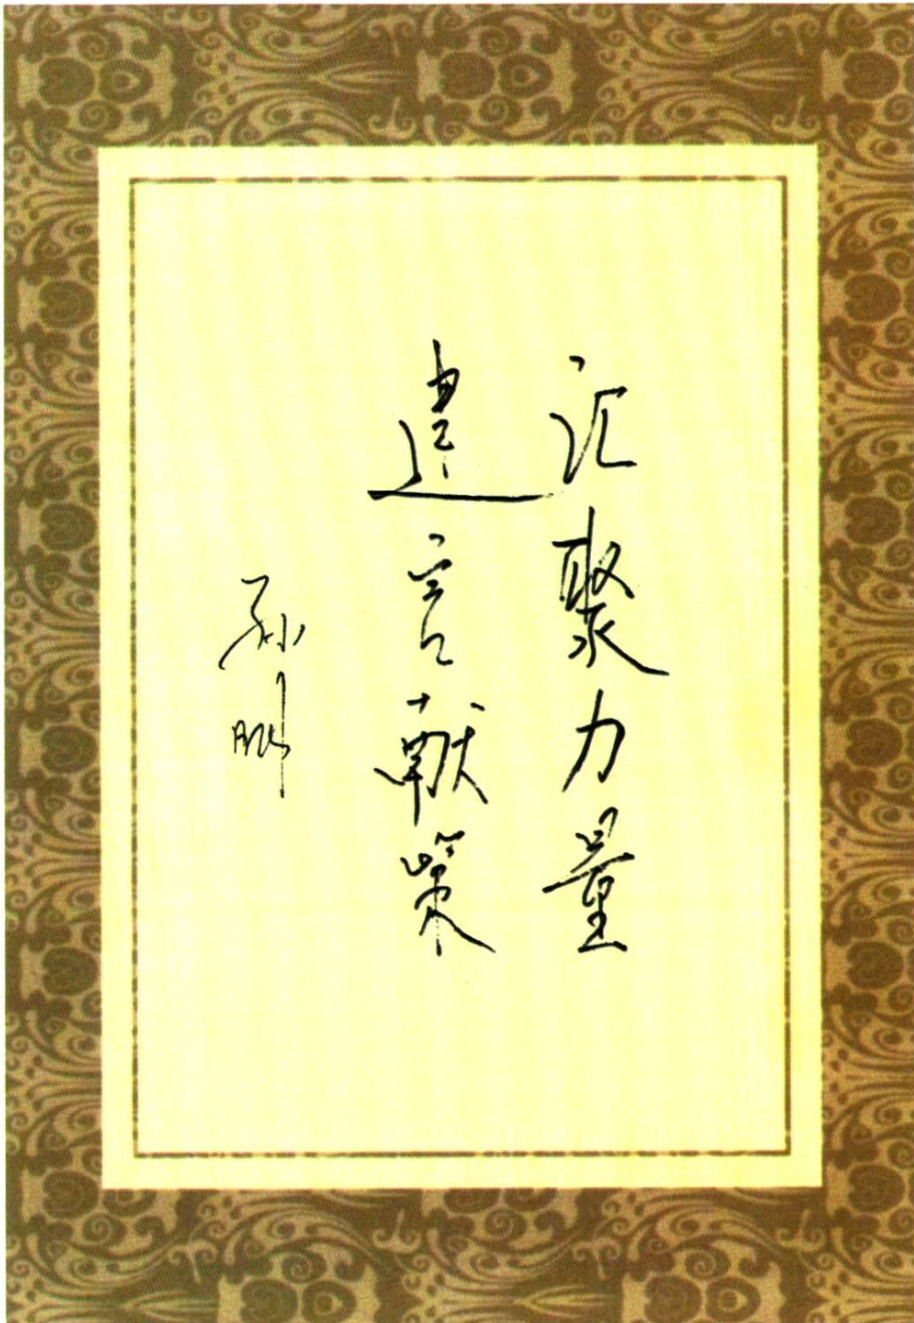 汇聚力量
建言献策
孙